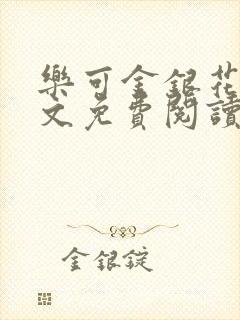 樂可金銀花
文免費閱讀
金銀錠